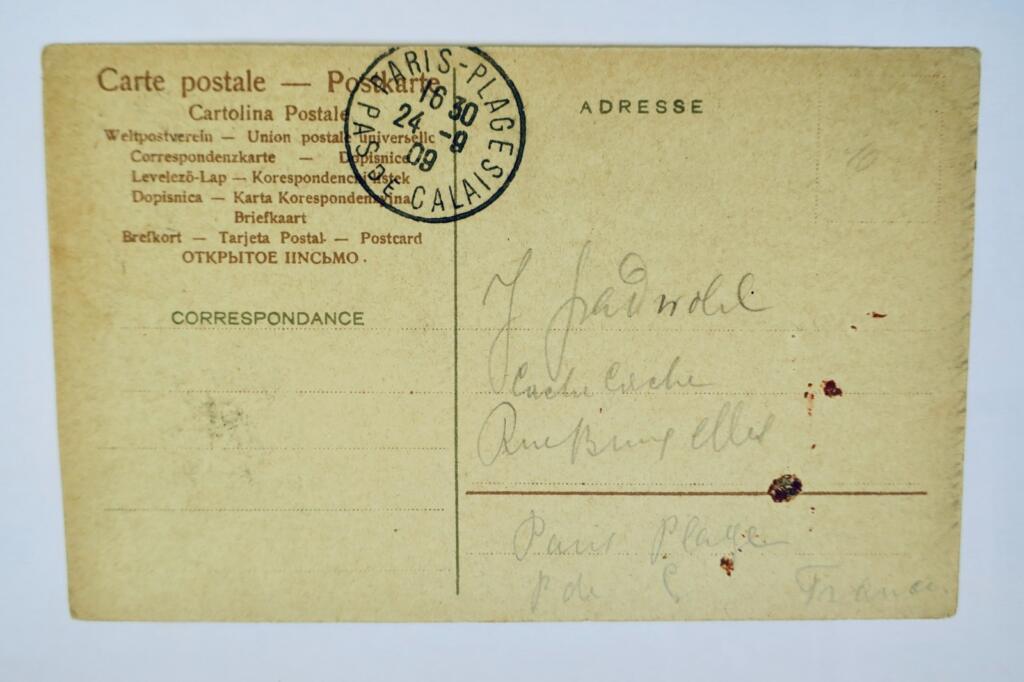 Carte postale — Postkarte
Cartolina Postale
Weltpostverein — Union postale universelle
Correspondenzkarte — Dopisnice
Levelező-Lap — Korespondencni listek
Dopisnica — Karta Korespondenzyjna
Briefkaart
Brefkort — Tarjeta Postal — Postcard
ОТКРЫТОЕ ПИСЬМО.
PARIS-PLAGES
16 30
24 -9
09
PAS DE CALAIS
ADRESSE
CORRESPONDANCE
J
Rue Bruxelles
Paris Plage
P de C France